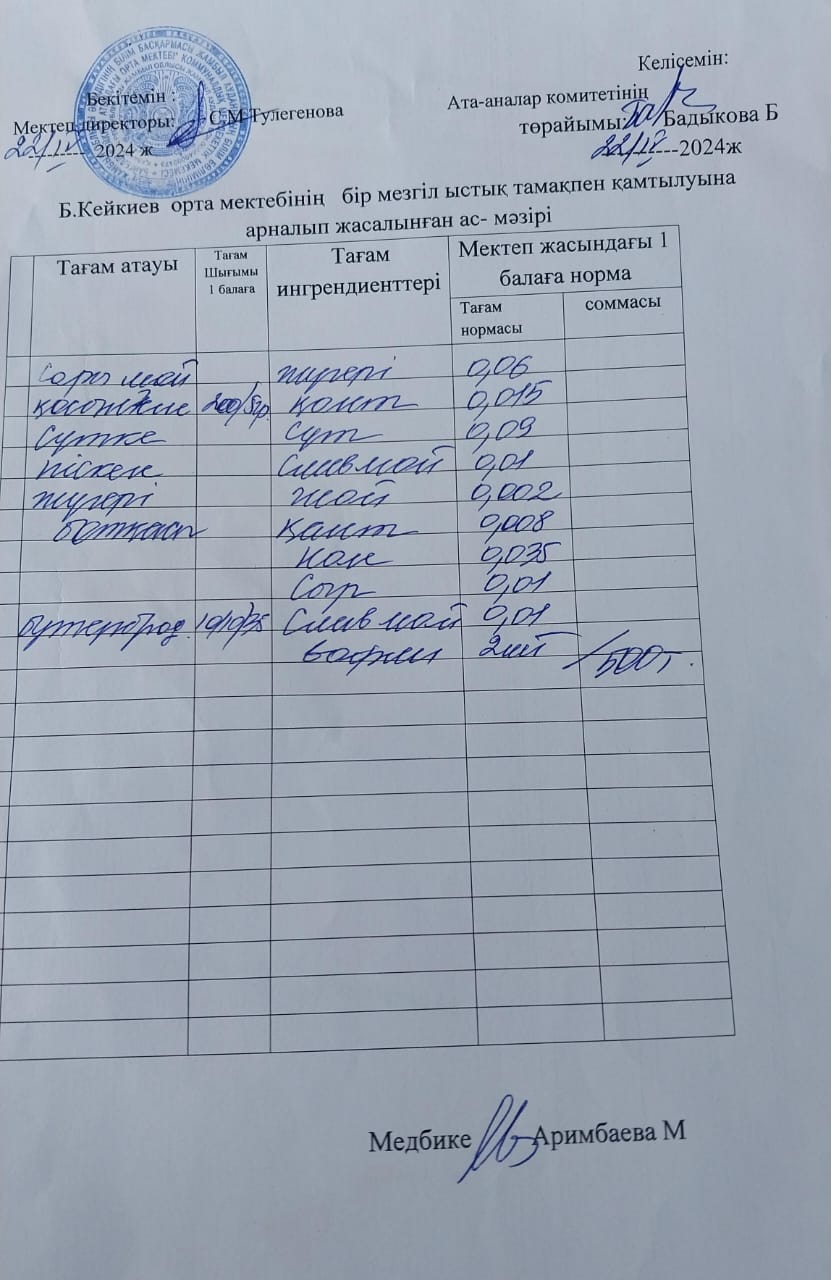 Келісемін:
Бекітемін :
Ата-аналар комитетінің
Мектеп директоры: С.М Тулегенова
төрайымы: Бадыкова Б
22/IV 2024 ж
22/IV ---2024ж
Б.Кейкиев орта мектебінің бір мезгіл ыстық тамақпен қамтылуына
арналып жасалынған ас- мәзірі
Тағам атауы Тағам Шығымы 1 балаға Тағам ингрендиенттері Мектеп жасындағы 1 балаға норма
Тағам нормасы соммасы
Сары май жүгері 0,06
қосылған 200/5гр. қант 0,015
сүтке сүт 0,09
піскен Слив май 0,01
жүгері 0,002
ботқасы қант 0,008
нан 0,035
Сыр 0,01
бутерброд 10/10/35 Слив май 0,01
вафли 2шт /500т.
Медбике Аримбаева М